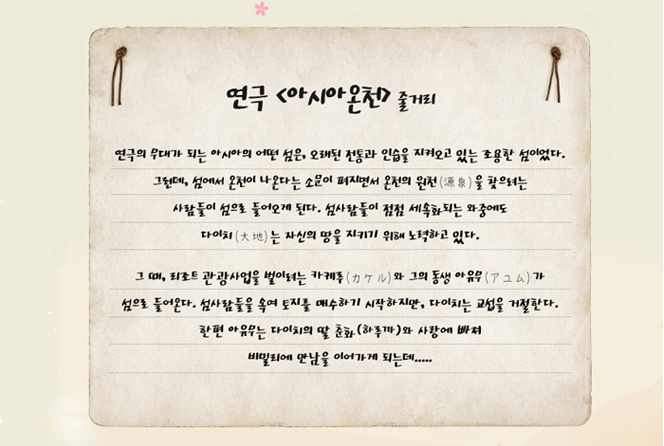 연극 <아시아온천> 줄거리
연극의 무대가 되는 아시아의 어떤 섬은, 오래된 전통과 인습을 지켜오고 있는 조용한 섬이었다.
그런데, 섬에서 온천이 나온다는 소문이 퍼지면서 온천의 원천(源泉)을 찾으려는
사람들이 섬으로 들어오게 된다. 섬사람들이 점점 세속화되는 와중에도
다이치(大地)는 자신의 땅을 지키기 위해 노력하고 있다.
그 때, 리조트 관광사업을 벌이려는 카케루(カケル)와 그의 동생 아유무(アユム)가
섬으로 들어온다. 섬사람들을 속여 토지를 매수하기 시작하지만, 다이치는 교섭을 거절한다.
한편 아유무는 다이치의 딸 춘화(하루카)와 사랑에 빠져
비밀리에 만남을 이어가게 되는데.....